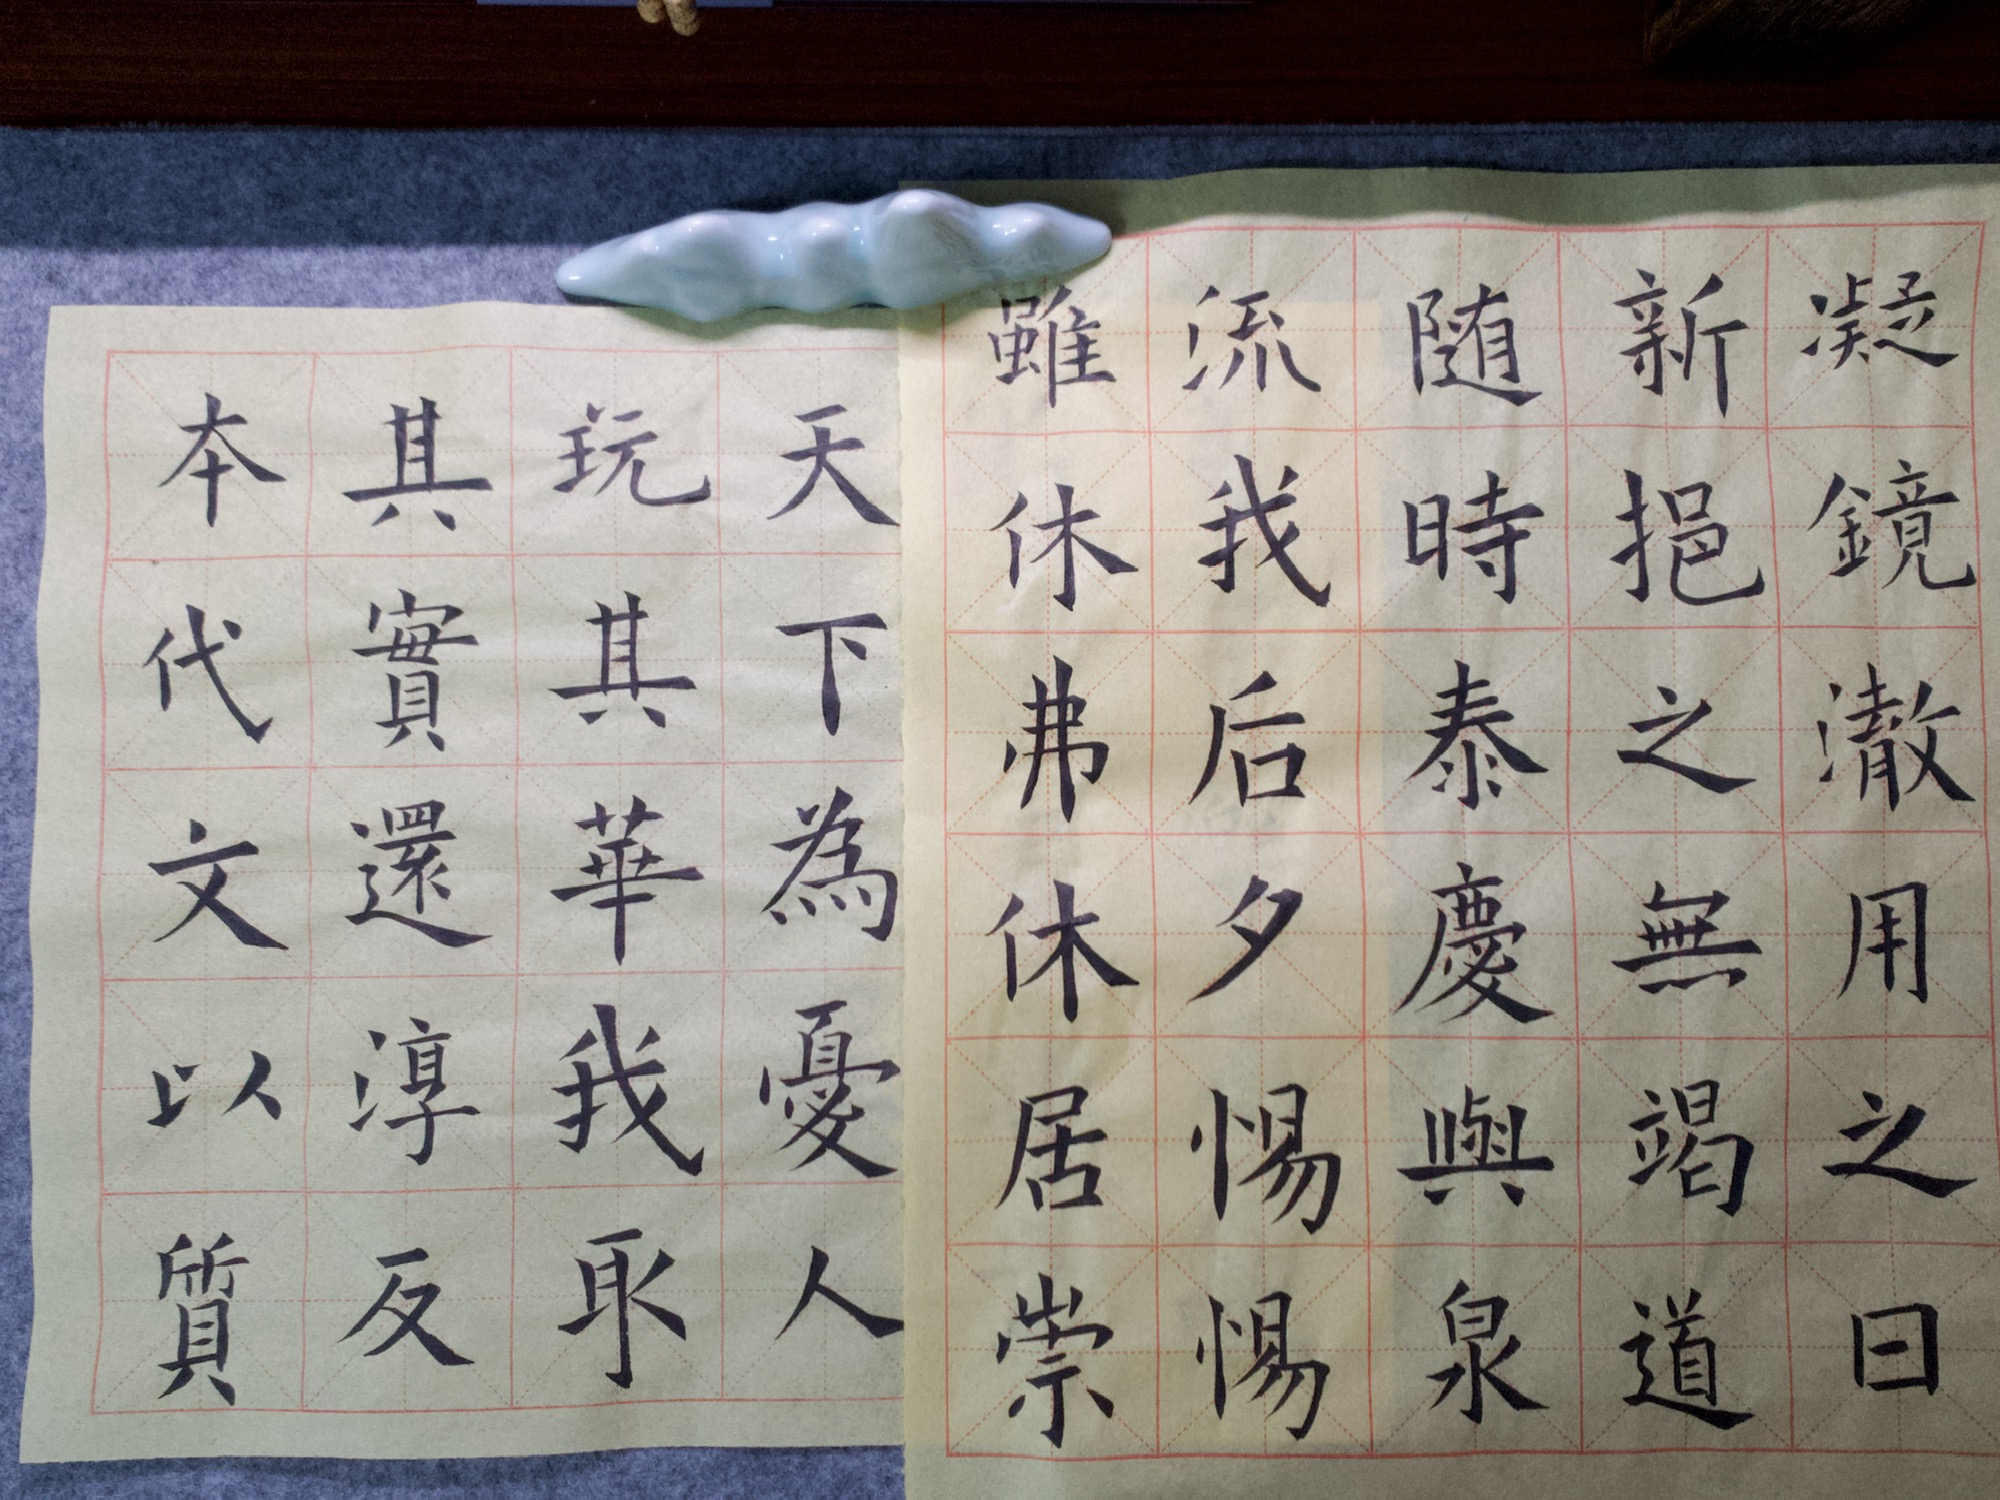 凝鏡澈用之日
新挹之無竭道
随時泰慶與泉
流我后夕惕惕
雖休弗休居崇
天下為憂人
玩其華我取
其實還淳反
本代文以質